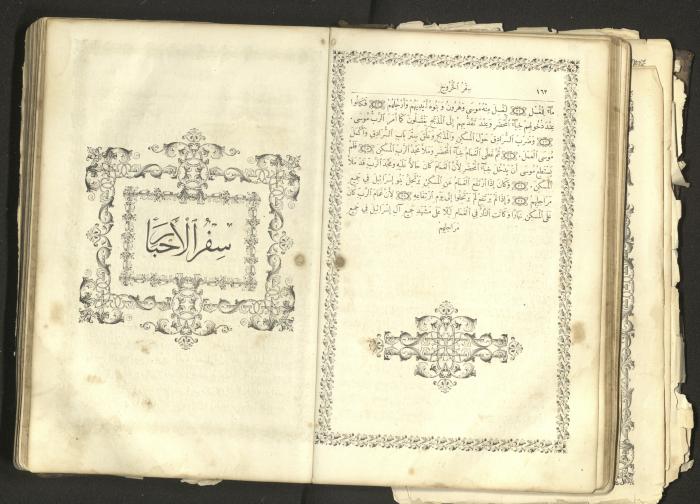 ١٦٢
سفر الخروج
مآء للغسل ليغسل منه موسى وهرون وبنوه ايديهم وأرجلهم فكانوا
عند دخولهم خبآء المحضر وعند تقدمهم إلى المذبح يغتسلون كما أمر الرب موسى.
وضرب السرادق حول المسكن والمذبح وعلّق ستر باب السرادق وأكمل
موسى العمل. ثم غطى الغمام خبآء المحضر وملأ مجد الرب المسكن. فلم
يستطع موسى أن يدخل خبآء المحضر لأن الغمام كان حالّاً عليه ومجد الرب قد ملأ
المسكن. وكان إذا ارتفع الغمام عن المسكن يرتحل بنو إسرائيل في جميع
مراحلهم. وإذا لم يرتفع لم يرتحلوا إلى يوم ارتفاعه لأن غمام الرب كان
على المسكن نهارا وكانت النار في الغمام ليلا على مشهد جميع آل إسرائيل في جميع
مراحلهم
سِفْرُ الأَحْبَارِ